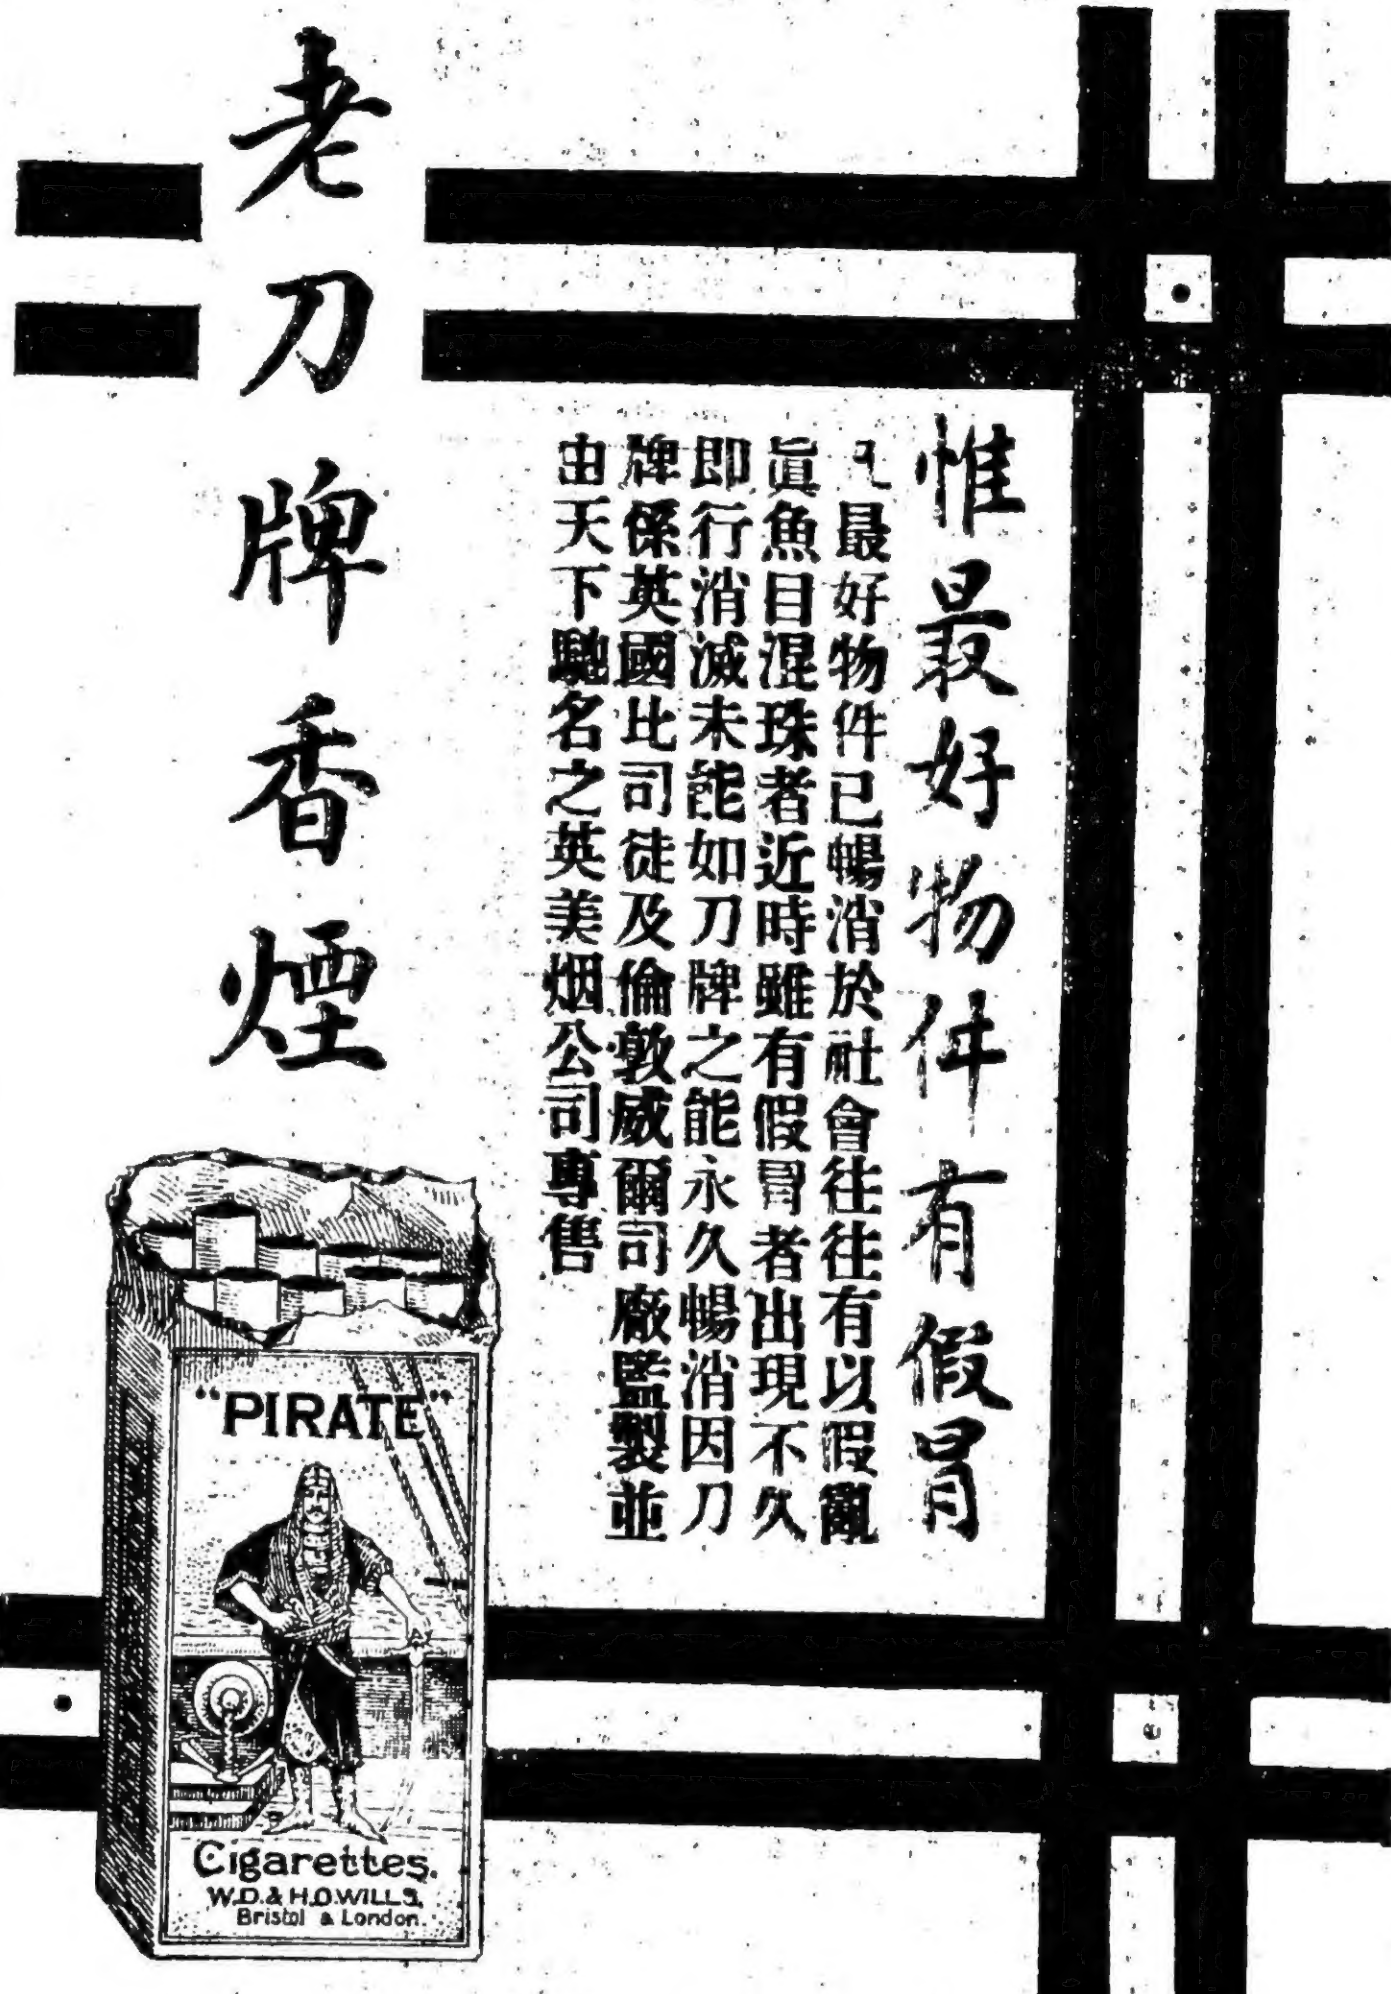 惟最好物件有假冒
凡最好物件已暢消於社會往往有以假亂
眞魚目混珠者近時雖有假冒者出現不久
即行消滅未能如刀牌之能永久暢消因刀
牌係英國比司徒及倫敦威爾司廠監製並
由天下馳名之英美烟公司專售
老刀牌香煙
"PIRATE"
Cigarettes.
W.D.&H.O.WILLS,
Bristol & London.